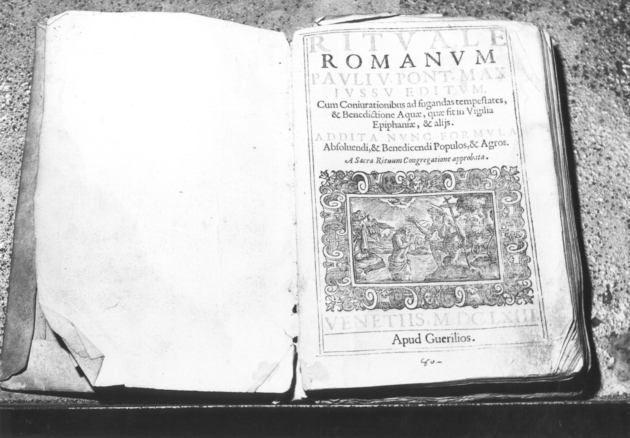 RITVALE
ROMANVM
PAVLI V. PONT. MAX
IVSSV EDITVM,
Cum Coniurationibus ad fugandas tempestates,
& Benedictione Aquæ, quæ fit in Vigilia
Epiphaniæ, & alijs.
ADDITA NVNC FORMVLA
Absoluendi, & Benedicendi Populos, & Agros.
A Sacra Rituum Congregatione approbata.
VENETIIS, MDCLXIII
Apud Guerilios.